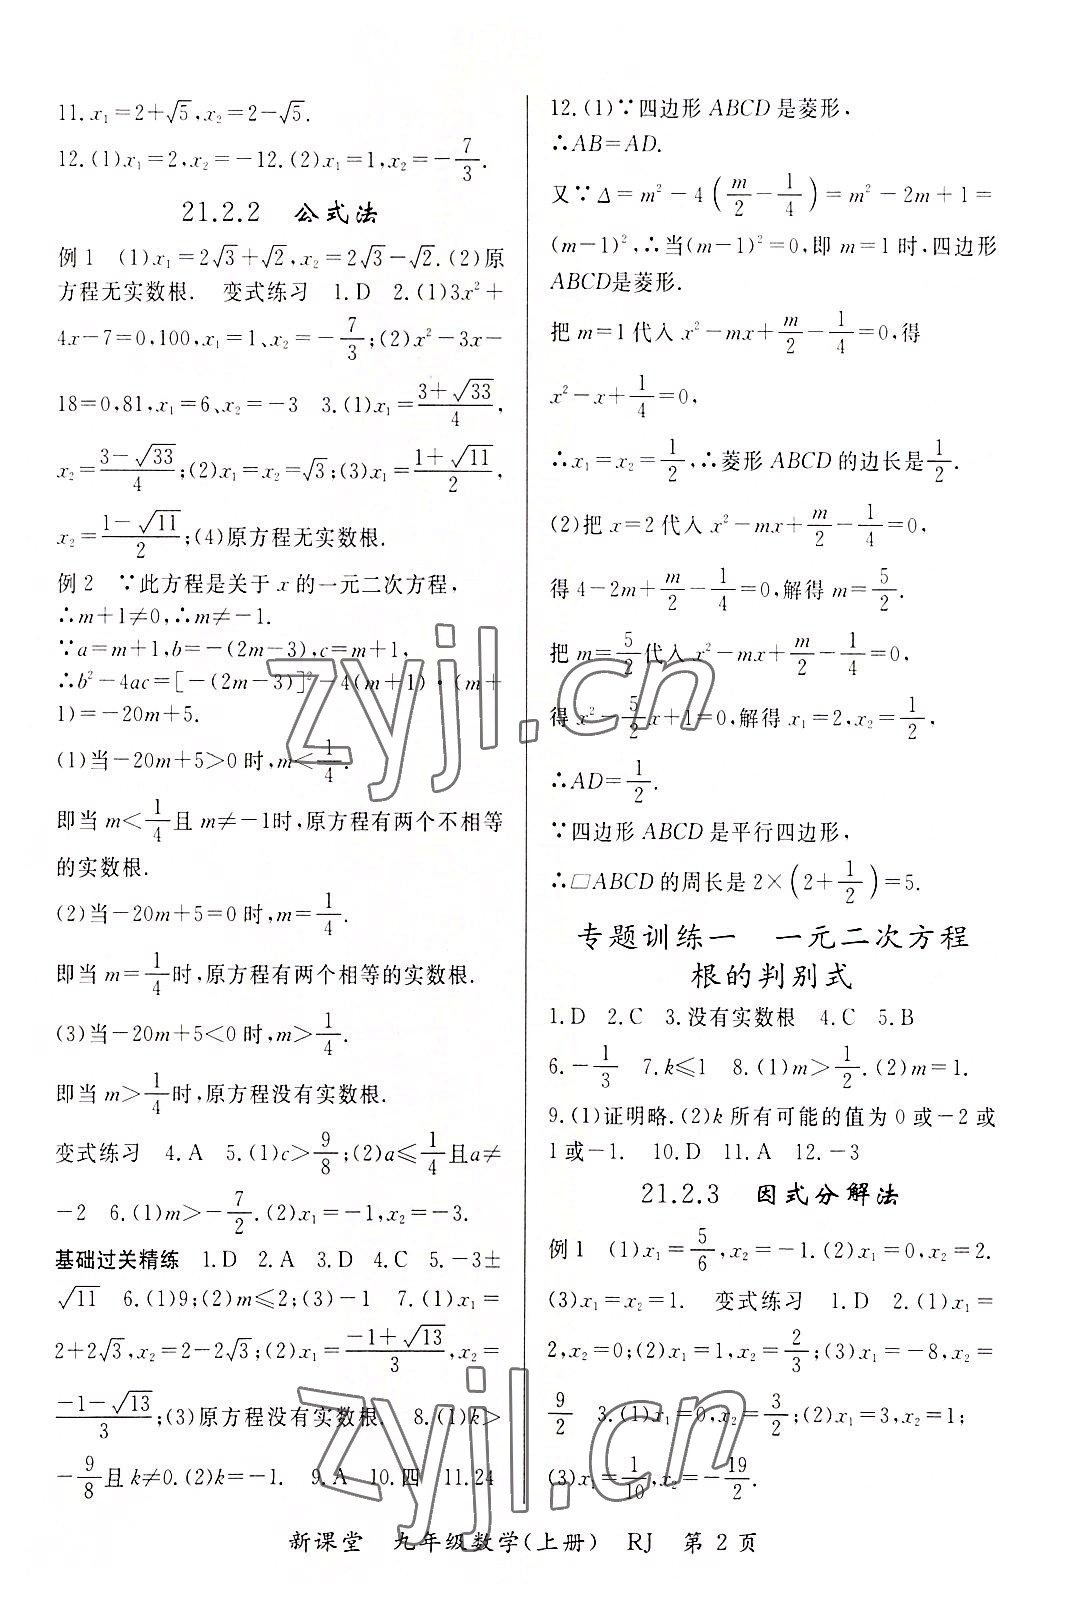 11. x₁=2+√5, x₂=2-√5.
12. (1)x₁=2, x₂=-12. (2)x₁=1, x₂=-7/3.
21.2.2 公式法
例1 (1)x₁=2√3+√2, x₂=2√3-√2. (2)原
方程无实数根. 变式练习 1.D 2.(1)3x²+
4x-7=0, 100, x₁=1、x₂=-7/3; (2)x²-3x-
18=0, 81, x₁=6、x₂=-3 3.(1)x₁=(3+√33)/4,
x₂=(3-√33)/4; (2)x₁=x₂=√3; (3)x₁=(1+√11)/2,
x₂=(1-√11)/2; (4)原方程无实数根.
例2 ∵此方程是关于 x 的一元二次方程,
∴m+1≠0, ∴m≠-1.
∵a=m+1, b=-(2m-3), c=m+1,
∴b²-4ac=[-(2m-3)]²-4(m+1)·(m+
1)=-20m+5.
(1)当-20m+5>0 时, m<1/4.
即当 m<1/4 且 m≠-1时, 原方程有两个不相等
的实数根.
(2)当-20m+5=0 时, m=1/4.
即当 m=1/4时, 原方程有两个相等的实数根.
(3)当-20m+5<0 时, m>1/4.
即当 m>1/4时, 原方程没有实数根.
变式练习 4.A 5.(1)c>9/8; (2)a≤1/4且a≠
-2 6.(1)m>-7/2. (2)x₁=-1, x₂=-3.
基础过关精练 1.D 2.A 3.D 4.C 5.-3±
√11 6.(1)9; (2)m≤2; (3)-1 7.(1)x₁=
2+2√3, x₂=2-2√3; (2)x₁=(-1+√13)/3, x₂=
(-1-√13)/3; (3)原方程没有实数根. 8.(1)k>
-9/8且 k≠0. (2)k=-1. 9.A 10.四 11.24
12.(1)∵四边形 ABCD 是菱形,
∴AB=AD.
又∵Δ=m²-4(m/2-1/4)=m²-2m+1=
(m-1)², ∴当(m-1)²=0, 即 m=1 时, 四边形
ABCD是菱形.
把 m=1 代入 x²-mx+m/2-1/4=0, 得
x²-x+1/4=0,
∴x₁=x₂=1/2, ∴菱形 ABCD 的边长是1/2.
(2)把 x=2 代入 x²-mx+m/2-1/4=0,
得 4-2m+m/2-1/4=0, 解得 m=5/2.
把 m=5/2代入 x²-mx+m/2-1/4=0,
得 x²-5/2x+1=0, 解得 x₁=2, x₂=1/2,
∴AD=1/2.
∵四边形 ABCD 是平行四边形,
∴□ABCD 的周长是 2×(2+1/2)=5.
专题训练一 一元二次方程
根的判别式
1.D 2.C 3.没有实数根 4.C 5.B
6.-1/3 7.k≤1 8.(1)m>1/2. (2)m=1.
9.(1)证明略. (2)k 所有可能的值为 0 或-2 或
1或-1. 10.D 11.A 12.-3
21.2.3 因式分解法
例1 (1)x₁=5/6, x₂=-1. (2)x₁=0, x₂=2.
(3)x₁=x₂=1. 变式练习 1.D 2.(1)x₁=
2, x₂=0; (2)x₁=1, x₂=2/3; (3)x₁=-8, x₂=
9/2 3.(1)x₁=0, x₂=3/2; (2)x₁=3, x₂=1;
(3)x₁=1/10, x₂=-19/2.
新课堂 九年级数学(上册) RJ 第 2 页
zyjl.cn
zyjl.cn